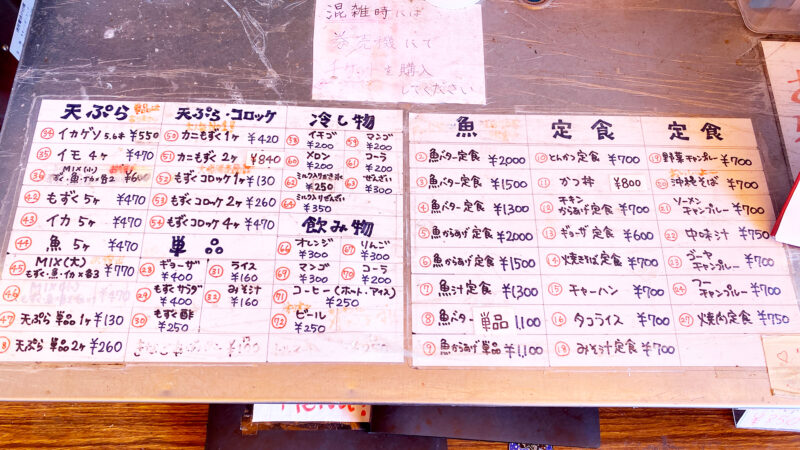 混雑時には
券売機にて
チケットを購入
してください
天ぷら 単品
34 イカゲソ 5.6本 ¥550
35 イモ 4ヶ ¥470
36 MIX(小)
42 もずく 5ヶ ¥470
43 イカ 5ヶ ¥470
44 魚 5ヶ ¥470
45 MIX(大) もずく・魚・イカ×各3 ¥770
46 MIX(小) ¥470
47 天ぷら 単品 1ヶ ¥130
天ぷら 単品 2ヶ ¥260
天ぷら・コロッケ
50 カニもずく 1ヶ ¥420
51 カニもずく 2ヶ ¥840
52 もずくコロッケ 1ヶ ¥130
53 もずくコロッケ 2ヶ ¥260
54 もずくコロッケ 4ヶ ¥470
単品
28 ギョーザ ¥400
31 ライス ¥160
29 もずくサラダ ¥400
32 みそ汁 ¥160
30 もずく酢 ¥250
冷し物
58 イチゴ ¥200
59 マンゴ ¥200
60 メロン ¥200
61 コーラ ¥200
62 ミルク入りかき氷 ¥250
63 ぜんざい ¥300
64 ミルク入りぜんざい ¥350
飲み物
66 オレンジ ¥300
67 りんご ¥300
69 マンゴ ¥300
70 コーラ ¥200
71 コーヒー(ホート・アイス) ¥250
72 ビール ¥250
魚
② 魚バター定食 ¥2,000
③ 魚バター定食 ¥1500
④ 魚バター定食 ¥1300
⑤ 魚からあげ定食 ¥2000
⑥ 魚からあげ定食 ¥1500
⑦ 魚汁定食 ¥1300
⑧ 魚バター 単品 1,100
⑨ 魚からあげ 単品 ¥1,100
定食
⑩ とんかつ定食 ¥700
⑪ かつ丼 ¥800
⑫ チキンからあげ定食 ¥700
⑬ ギョーザ定食 ¥600
⑭ 焼きそば定食 ¥700
⑮ チャーハン ¥700
⑯ タコライス ¥700
⑱ みそ汁定食 ¥700
定食
⑲ 野菜チャンプルー ¥700
⑳ 沖縄そば ¥700
21 ソーメンチャンプルー ¥700
22 中味汁 ¥750
23 ゴーヤチャンプルー ¥700
24 フーチャンプルー ¥700
27 焼肉定食 ¥750